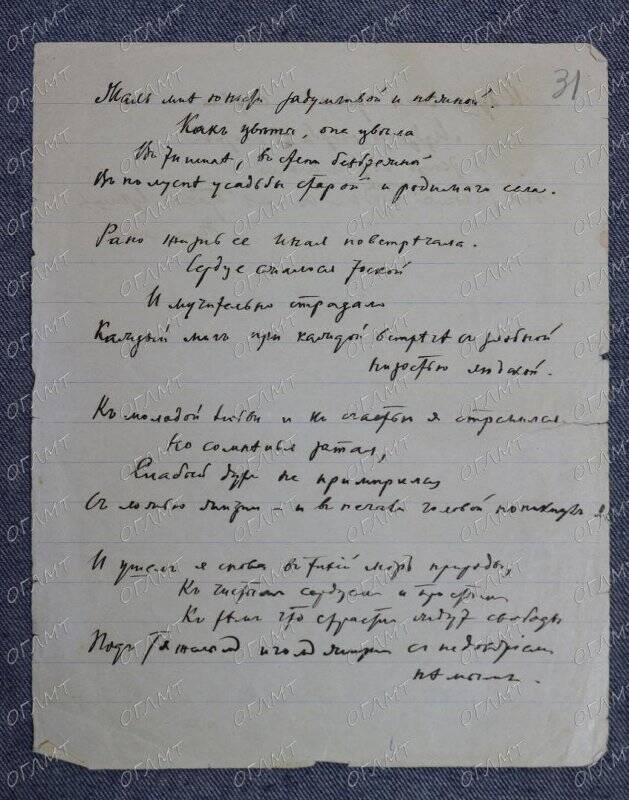 31
Жаль мне юности задумчивой и нѣжной!
Какъ цвѣты, она цвѣла
Въ тишинѣ, въ степи безбрежной
Въ полуснѣ усадьбы старой и родимаго села.
Рано жизнь ее иная повстрѣчала.
Сердце сжалося тоской
И мучительно страдало
Каждый мигъ при каждой встрѣчѣ съ злобной
низостью людской.
Къ молодой любви и къ счастью я стремился
Но сомнѣнья затая,
Слабый духъ не примирился
Съ ложью жизни – и въ печали головой поникнулъ я.
И ушелъ я снова въ тихій міръ природы,
Къ чистымъ сердцемъ и простымъ
Къ тѣмъ что страстно ждутъ свободы
Подъ тяжелымъ игомъ жизни съ недовѣріемъ
нѣмымъ.
ОГЛМТ